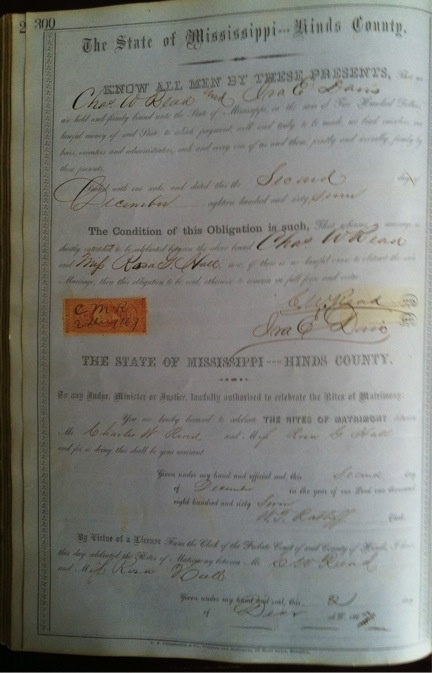 2 300
The State of Mississippi---Hinds County.
KNOW ALL MEN BY THESE PRESENTS, That we
Chas W Read and Ira E Davis
are held and firmly bound unto the State of Mississippi in the sum of Two Hundred Dollars,
lawful money of said State to which payment, well and truly to be made, we bind ourselves, our
heirs, executors and administrators, each and every one of us and them jointly and severally, firmly by
these presents.
Sealed with our seals, and dated this the Second day of
December eighteen hundred and sixty Seven
The Condition of this Obligation is such, That whereas a marriage is
shortly intended to be celebrated between the above bound Chas W Read
and Miss Rosa G. Hall now, if there is no lawful cause to obstruct the said
Marriage, then this obligation to be void, otherwise to remain in full force and virtue.
C W Read
Ira E Davis
THE STATE OF MISSISSIPPI----HINDS COUNTY.
To any Judge, Minister or Justice, lawfully authorised to celebrate the Rites of Matrimony:
You are hereby licensed to celebrate THE RITES OF MATRIMONY between
Mr Charles W Read and Miss Rosa G Hall
and for so doing this shall be your warrant.
Given under my hand and official seal, this Second day
of December in the year of our Lord one thousand
eight hundred and sixty Seven
Clerk
By Virtue of a License From the Clerk of the Probate Court of said County of Hinds, I have
this day celebrated the Rites of Matrimony between Mr C W Read
and Miss Rosa Hall
Given under my hand and seal, this 2 day
of Decr